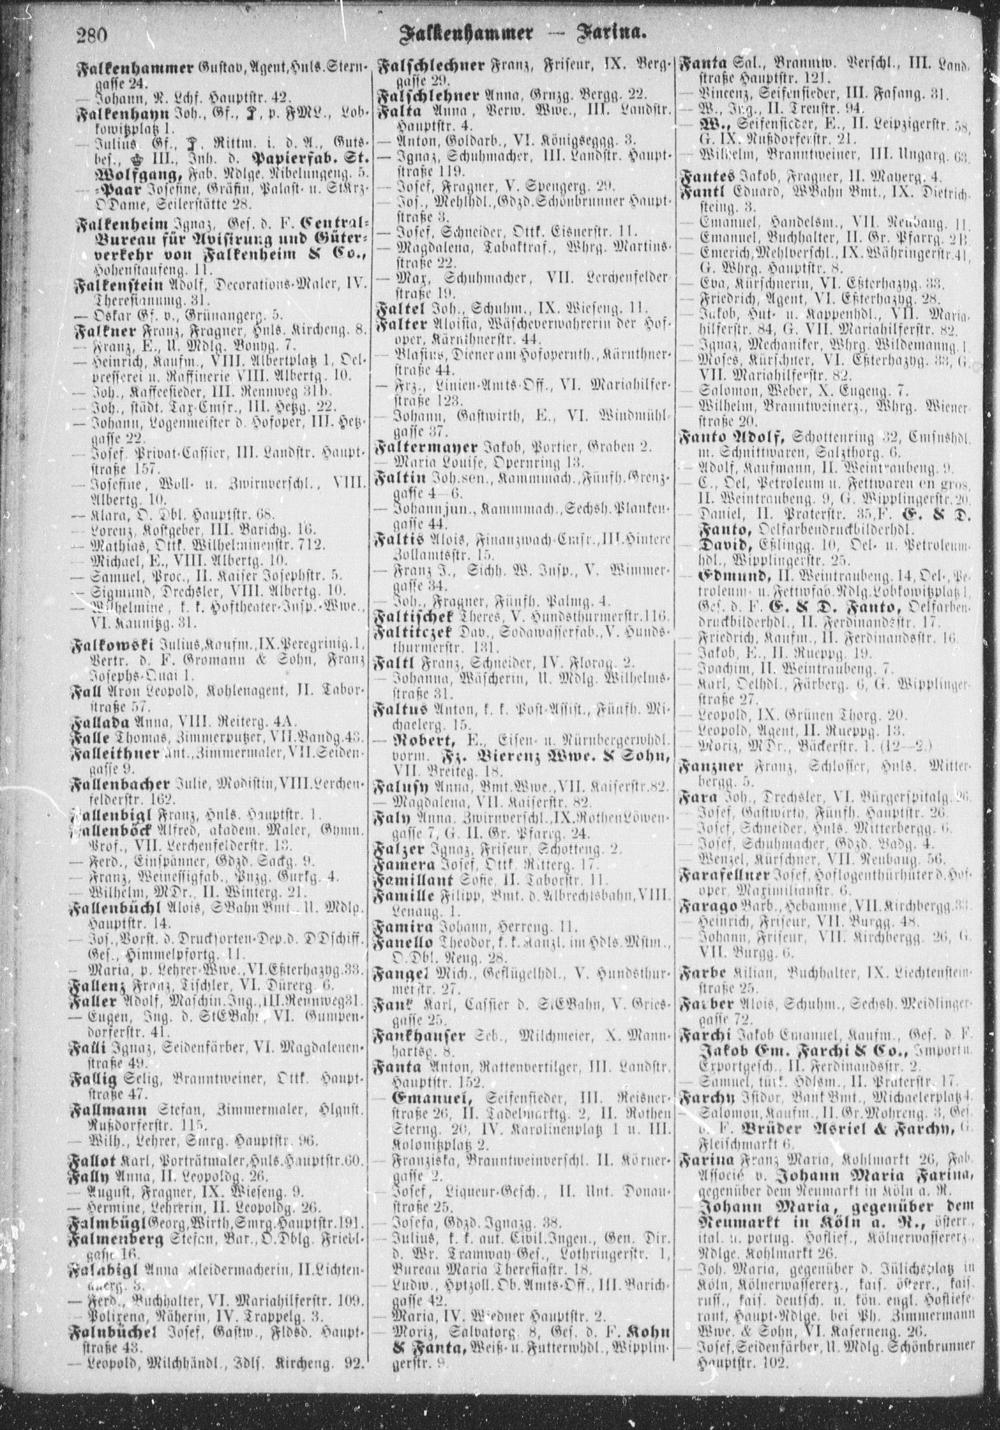 280
Falkenhammer — Farina.
Falkenhammer Gustav, Agent, Huls. Stern-
gasse 24.
— Johann, R. Lchf. Hauptstr. 42.
Falkenhayn Joh., Gf., p. FML., Lob-
kowitzplatz 1.
— Julius Gf., Rittm. i. d. A., Guts-
bes., III., Inh. d. Papierfab. St.
Wolfgang, Fab. Ndlge. Nibelungeng. 5.
— -Paar Josefine, Gräfin, Palast- u. StKrz-
ODame, Seilerstätte 28.
Falkenheim Ignaz, Ges. d. F. Central-
Bureau für Avisirung und Güter-
verkehr von Falkenheim & Co.,
Hohenstaufeng. 11.
Falkenstein Adolf, Decorations-Maler, IV.
Theresianumg. 31.
— Oskar Gf. v., Grünangerg. 5.
Falkner Franz, Fragner, Huls. Kircheng. 8.
— Franz, E., U. Mdlg. Bonyg. 7.
— Heinrich, Kaufm., VIII. Albertplatz 1, Oel-
presserei u. Raffinerie VIII. Albertg. 10.
— Joh., Kaffeesieder, III. Rennweg 31b.
— Joh., städt. Tax-Cmsr., III. Hetzg. 22.
— Johann, Logenmeister d. Hofoper, III. Hetz-
gasse 22.
— Josef, Privat-Cassier, III. Landstr. Haupt-
straße 157.
— Josefine, Woll- u. Zwirnverschl., VIII.
Albertg. 10.
— Klara, O. Dbl. Hauptstr. 68.
— Lorenz, Kostgeber, III. Barichg. 16.
— Mathias, Ottk. Wilhelminenstr. 712.
— Michael, E., VIII. Albertg. 10.
— Samuel, Proc., II. Kaiser Josephstr. 5.
— Sigmund, Drechsler, VIII. Albertg. 10.
— Wilhelmine, k. k. Hoftheater-Insp.-Wwe.,
VI. Kaunitzg. 31.
Falkowski Julius, Kaufm., IX. Peregrinig. 1,
Vertr. d. F. Gromann & Sohn, Franz
Josephs-Quai 1.
Fall Aron Leopold, Kohlenagent, II. Tabor-
straße 57.
Fallada Anna, VIII. Reiterg. 4A.
Falle Thomas, Zimmerputzer, VII. Bandg. 43.
Falleithner Ant., Zimmermaler, VII. Seiden-
gasse 9.
Fallenbacher Julie, Modistin, VIII. Lerchen-
felderstr. 162.
Fallenbigl Franz, Huls. Hauptstr. 1.
Fallenböck Alfred, akadem. Maler, Gymn.
Prof., VII. Lerchenfelderstr. 13.
— Ferd., Einspänner, Gdzd. Sackg. 9.
— Franz, Weinessigfab., Pnzg. Gurkg. 4.
— Wilhelm, MDr., II. Winterg. 21.
Fallenbüchl Alois, SBahn Bmt., U. Mdlg.
Hauptstr. 14.
— Jos., Vorst. d. Drucksorten-Dep. d. DDschiff.
Ges., Himmelpfortg. 11.
— Maria, p. Lehrer-Wwe., VI. Eßterhazyg. 33.
Fallenz Franz, Tischler, VI. Dürerg. 6.
Faller Adolf, Maschin. Ing., III. Rennweg 31.
— Eugen, Ing. d. StEBahn, VI. Gumpen-
dorferstr. 41.
Falli Ignaz, Seidenfärber, VI. Magdalenen-
straße 49.
Fallig Selig, Branntweiner, Ottk. Haupt-
straße 47.
Fallmann Stefan, Zimmermaler, Hlgnst.
Nußdorferstr. 115.
— Wilh., Lehrer, Smrg. Hauptstr. 96.
Fallot Karl, Porträtmaler, Huls. Hauptstr. 60.
Fally Anna, II. Leopoldg. 26.
— August, Fragner, IX. Wieseng. 9.
— Hermine, Lehrerin, II. Leopoldg. 26.
Falmbügl Georg, Wirth, Smrg. Hauptstr. 191.
Falmenberg Stefan, Bar., O. Dblg. Friedl-
gasse 16.
Falnbigl Anna Kleidermacherin, II. Lichten-
auerg. 3.
— Ferd., Buchhalter, VI. Mariahilferstr. 109.
— Polixena, Näherin, IV. Trappelg. 3.
Falnbüchel Josef, Gastw., Fldsd. Haupt-
straße 43.
— Leopold, Milchhändl., Jdls. Kircheng. 92.
Falschlechner Franz, Friseur, IX. Berg-
gasse 29.
Falschlehner Anna, Grnzg. Bergg. 22.
Falta Anna, Verw. Wwe., III. Landstr.
Hauptstr. 4.
— Anton, Goldarb., VI. Königsegg. 3.
— Ignaz, Schuhmacher, III. Landstr. Haupt-
straße 119.
— Josef, Fragner, V. Spengerg. 29.
— Jos., Mehlhdl., Gdzd. Schönbrunner Haupt-
straße 3.
— Josef, Schneider, Ottk. Eisnerstr. 11.
— Magdalena, Tabaktraf., Whrg. Martins-
straße 22.
— Max, Schuhmacher, VII. Lerchenfelder-
straße 19.
Faltel Joh., Schuhm., IX. Wieseng. 11.
Falter Aloisia, Wäscheverwahrerin der Hof-
oper, Kärnthnerstr. 44.
— Blasius, Diener am Hofoperuth., Kärnthner-
straße 44.
— Frz., Linien-Amts-Off., VI. Mariahilfer-
straße 123.
— Johann, Gastwirth, E., VI. Windmühl-
gasse 37.
Faltermayer Jakob, Portier, Graben 2.
— Maria Louise, Opernring 13.
Faltin Joh. sen., Kammmach., Fünfh. Grenz-
gasse 4—6.
— Johann jun., Kammmach., Sechsh. Planken-
gasse 44.
Faltis Alois, Finanzwach-Cmsr., III. Hintere
Zollamtsstr. 15.
— Franz J., Sichh. W. Insp., V. Wimmer-
gasse 34.
— Joh., Fragner, Fünfh. Palmg. 4.
Faltischek Theres, V. Hundsthurmerstr. 116.
Faltitczek Dav., Sodawasserfab., V. Hunds-
thurmerstr. 131.
Faltl Franz, Schneider, IV. Florag. 2.
— Johanna, Wäscherin, U. Mdlg. Wilhelms-
straße 31.
Faltus Anton, k. k. Post-Assist., Fünfh. Mi-
chaelerg. 15.
— Robert, E., Eisen- u. Nürnbergerwhdl.
vorm. Fz. Vierenz Wwe. & Sohn,
VII. Breiteg. 18.
Falusy Anna, Bmt. Wwe., VII. Kaiserstr. 82.
— Magdalena, VII. Kaiserstr. 82.
Faly Anna, Zwirnverschl., IX. Rothen Löwen-
gasse 7, G. II. Gr. Pfarrg. 24.
Falzer Ignaz, Friseur, Schotteng. 2.
Famera Josef, Ottk. Ritterg. 17.
Famillant Sofie, II. Taborstr. 11.
Famille Filipp, Bmt. d. Albrechtsbahn, VIII.
Lenaug. 1.
Famira Johann, Herreng. 11.
Fanello Theodor, k. k. Kanzl. im Hdls. Mstm.,
O. Dbl. Neug. 28.
Fangel Mich., Geflügelhdl., V. Hundsthur-
merstr. 27.
Fank Karl, Cassier d. StEBahn, V. Gries-
gasse 25.
Fankhauser Seb., Milchmeier, X. Mann-
hartsg. 8.
Fanta Anton, Rattenvertilger, III. Landstr.
Hauptstr. 152.
— Emanuel, Seifensieder, III. Reisner-
straße 26, II. Tadelmarktg. 2, II. Rothen
Sterng. 20, IV. Karolinenplatz 1 u. III.
Kolonitzplatz 2.
— Franziska, Branntweinverschl. II. Körner-
gasse 2.
— Josef, Liqueur-Gesch., II. Unt. Donau-
straße 25.
— Josefa, Gdzd. Ignazg. 38.
— Julius, k. k. aut. Civil. Ingen., Gen. Dir.
d. Wr. Tramway-Ges., Lothringerstr. 1,
Bureau Maria Theresiastr. 18.
— Ludw., Hptzoll. Ob. Amts-Off., III. Barich-
gasse 42.
— Maria, IV. Wiedner Hauptstr. 2.
— Moriz, Salvatorg. 8, Ges. d. F. Kohn
& Fanta, Weiß- u. Futterwhdl., Wipplin-
gerstr. 9.
Fanta Sal., Branntw. Verschl., III. Land-
straße Hauptstr. 121.
— Vincenz, Seifensieder, III. Fasang. 31.
— W., Ing., II. Treustr. 94.
— W., Seifensieder, E., II. Leipzigerstr. 58,
G. IX. Nußdorferstr. 21.
— Wilhelm, Branntweiner, III. Ungarg. 63.
Fantes Jakob, Fragner, II. Mayerg. 4.
Fantl Eduard, WBahn Bmt., IX. Dietrich-
steing. 3.
— Emanuel, Handelsm., VII. Neubaug. 11.
— Emanuel, Buchhalter, II. Gr. Pfarrg. 2B.
— Emerich, Mehlverschl., IX. Währingerstr. 41,
G. Whrg. Hauptstr. 8.
— Eva, Kürschnerin, VI. Eßterhazyg. 33.
— Friedrich, Agent, VI. Eßterhazyg. 28.
— Jakob, Hut- u. Kappenhdl., VII. Maria-
hilferstr. 84, G. VII. Mariahilferstr. 82.
— Ignaz, Mechaniker, Whrg. Wildemanng. 1.
— Moses, Kürschner, VI. Eßterhazyg. 33, G.
VII. Mariahilferstr. 82.
— Salomon, Weber, X. Eugeng. 7.
— Wilhelm, Branntweinerz., Whrg. Wiener-
straße 20.
Fanto Adolf, Schottenring 32, Cmsnshdl.
m. Schnittwaren, Salzthorg. 6.
— Adolf, Kaufmann, II. Weintraubeng. 9.
— C., Oel, Petroleum u. Fettwaren en gros,
II. Weintraubeng. 9, G. Wipplingerstr. 20.
— Daniel, II. Praterstr. 35, F. E. & D.
Fanto, Oelfarbendruckbilderhdl.
— David, Eßlingg. 10, Oel- u. Petroleum-
hdl., Wipplingerstr. 25.
— Edmund, II. Weintraubeng. 14, Oel-, Pe-
troleum- u. Fettwfab. Ndlg. Lobkowitzplatz 1,
Ges. d. F. E. & D. Fanto, Oelfarben-
druckbilderhdl., II. Ferdinandsstr. 17.
— Friedrich, Kaufm., II. Ferdinandsstr. 16.
— Jakob, E., II. Rueppg. 19.
— Joachim, II. Weintraubeng. 7.
— Karl, Oelhdl., Färberg. 6, G. Wipplinger-
straße 27.
— Leopold, IX. Grünen Thorg. 20.
— Leopold, Agent, II. Rueppg. 13.
— Moriz, MDr., Bäckerstr. 1. (12—2.)
Fanzner Franz, Schlosser, Huls. Mitter-
bergg. 5.
Fara Joh., Drechsler, VI. Bürgerspitalg. 26.
— Josef, Gastwirth, Fünfh. Hauptstr. 26.
— Josef, Schneider, Huls. Mitterbergg. 6.
— Josef, Schuhmacher, Gdzd. Badg. 4.
— Wenzel, Kürschner, VII. Neubaug. 56.
Farafellner Josef, Hoflogenthürhüter d. Hof-
oper, Maximilianstr. 6.
Farago Barb., Hebamme, VII. Kirchbergg. 33.
— Heinrich, Friseur, VII. Burgg. 48.
— Johann, Friseur, VII. Kirchbergg. 26, G.
VII. Burgg. 6.
Farbe Kilian, Buchhalter, IX. Liechtenstein-
straße 25.
Farber Alois, Schuhm., Sechsh. Meidlinger-
gasse 72.
Farchi Jakob Emanuel, Kaufm., Ges. d. F.
Jakob Em. Farchi & Co., Import u.
Exportgesch., II. Ferdinandsstr. 2.
— Samuel, türk. Hdlsm., II. Praterstr. 17.
Farchy Isidor, Bank Bmt., Michaelerplatz 4.
— Salomon, Kaufm., II. Gr. Mohreng. 3, Ges.
d. F. Brüder Asriel & Farchy, G.
Fleischmarkt 6.
Farina Franz Maria, Kohlmarkt 26, Fab.
Associé v. Johann Maria Farina,
gegenüber dem Neumarkt in Köln a. R.
— Johann Maria, gegenüber dem
Neumarkt in Köln a. R., österr.,
ital. u. portug. Hoflief., Kölnerwasserez.,
Ndlge. Kohlmarkt 26.
— Joh. Maria, gegenüber d. Jülichsplatz in
Köln, Kölnerwasserez., kais. österr., kais.
russ., kais. deutsch. u. kön. engl. Hofliefe-
rant, Haupt-Ndlge. bei Ph. Zimmermann
Wwe. & Sohn, VI. Kaserneng. 26.
— Josef, Seidenfärber, U. Mdlg. Schönbrunner
Hauptstr. 102.